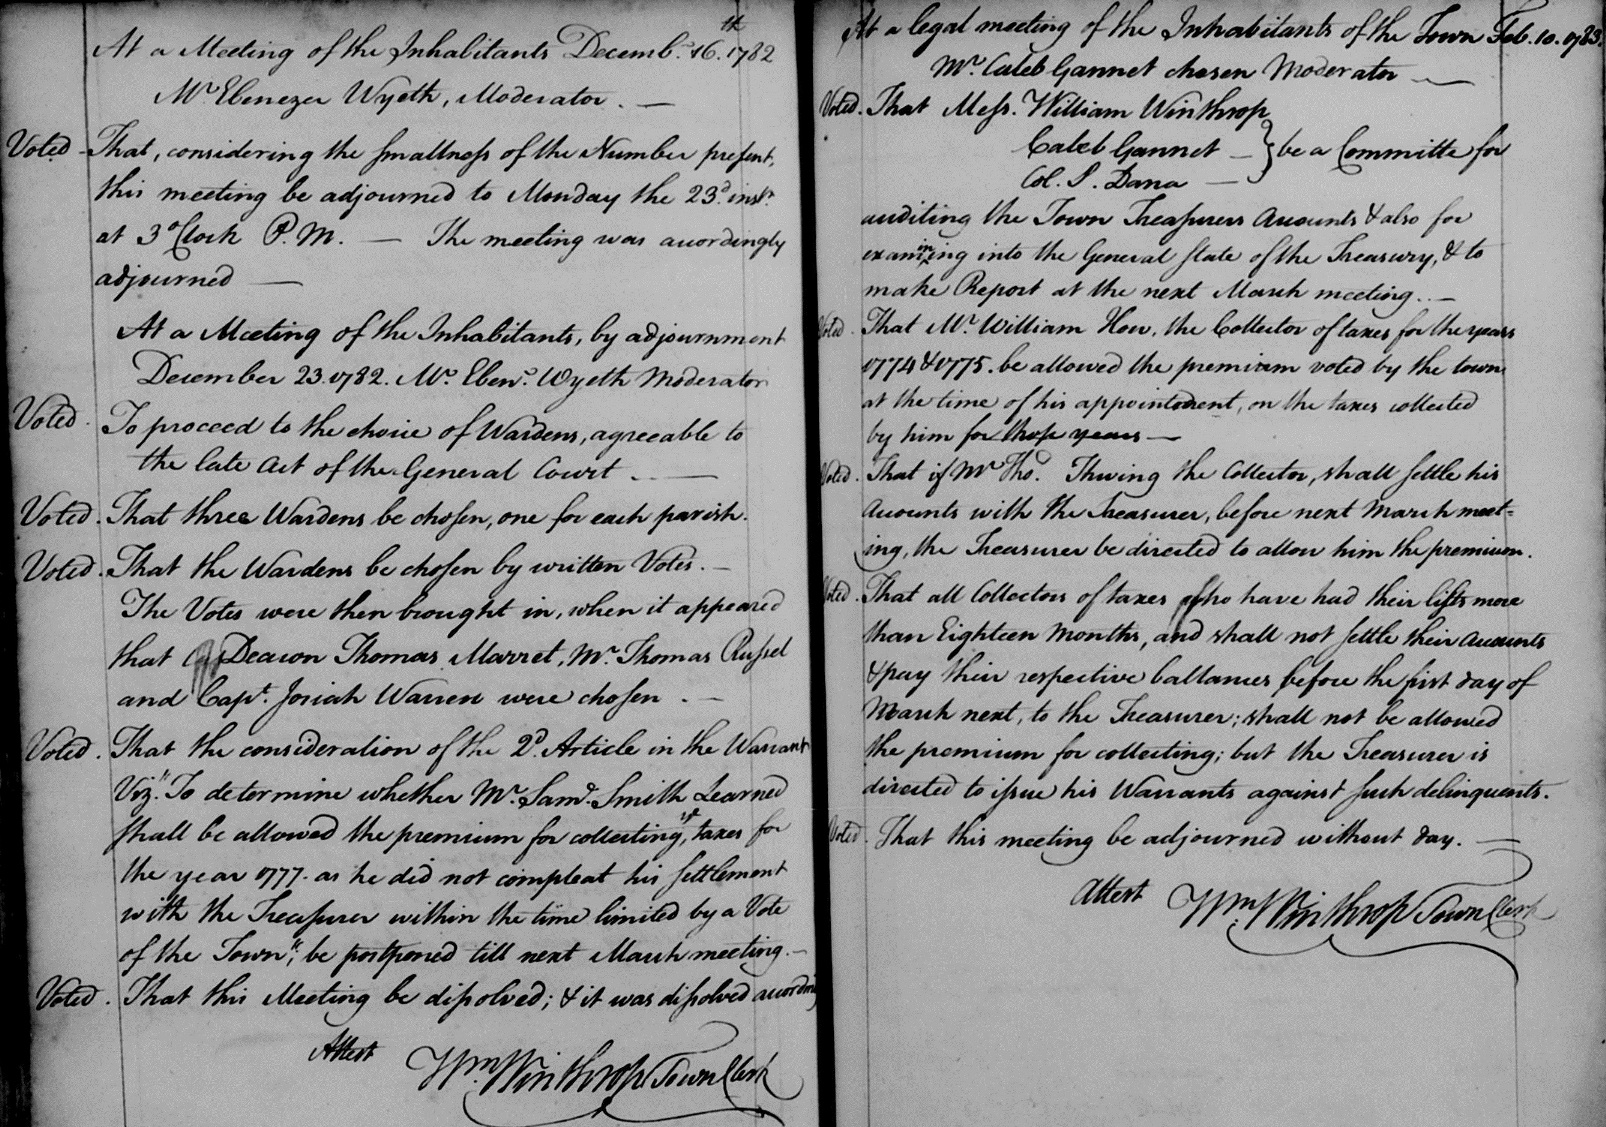 At a Meeting of the Inhabitants Decemb.r 16.th 1782
Mr. Ebenezer Wyeth, Moderator. —
Voted. That, considering the smallness of the Number present,
this meeting be adjourned to Monday the 23.d inst.
at 3 oClock P.M. — The meeting was accordingly
adjourned —
At a Meeting of the Inhabitants, by adjournment
December 23. 1782. Mr. Eben.r Wyeth Moderator
Voted. To proceed to the choice of Wardens, agreeable to
the late Act of the General Court. —
Voted. That three Wardens be chosen, one for each parish.
Voted. That the Wardens be chosen by written Votes. —
The Votes were then brought in, when it appeared
that Deacon Thomas Marret, Mr. Thomas Russel
and Capt. Josiah Warren were chosen. —
Voted. That the consideration of the 2.d Article in the Warrant
Viz. "To determine whether Mr. Sam.l Smith Learned
shall be allowed the premium for collecting ye taxes for
the year 1777. as he did not compleat his settlement
with the Treasurer within the time limited by a Vote
of the Town"; be postponed till next March meeting. —
Voted. That this Meeting be dissolved; & it was dissolved accordingly
Attest
Wm. Winthrop Town Clerk
At a legal meeting of the Inhabitants of the Town Feb. 10. 1783.
Mr. Caleb Gannet chosen Moderator —
Voted. That Mess. William Winthrop
Caleb Gannet — } be a Committe for
Col. S. Dana —
auditing the Town Treasurers Accounts & also for
examining into the General State of the Treasury, & to
make Report at the next March meeting. —
Voted. That Mr. William How, the Collector of taxes for the years
1774 & 1775. be allowed the premium voted by the town
at the time of his appointment, on the taxes collected
by him for those years —
Voted. That if Mr. Tho.s Thwing the Collector, shall settle his
Accounts with the Treasurer, before next March meet=
ing, the Treasurer be directed to allow him the premium.
Voted. That all Collectors of taxes who have had their lists more
than Eighteen Months, and shall not settle their Accounts
& pay their respective ballances before the first day of
March next, to the Treasurer; shall not be allowed
the premium for collecting; but the Treasurer is
directed to issue his Warrants against such delinquents.
Voted. That this meeting be adjourned without day. —
Attest Wm. Winthrop Town Clerk